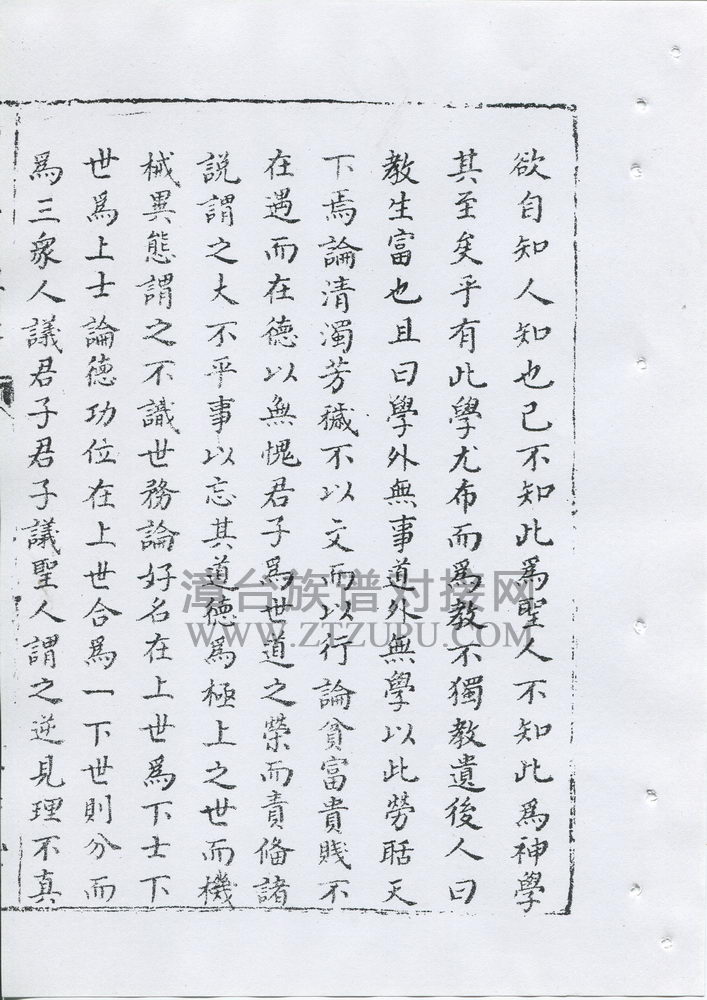 欲自知人知也已不知此爲聖人不知此爲神學
其至矣乎有此學尤布而爲教不獨教遺後人曰
教生富也且曰學外無事道外無學以此勞聒天
下焉論清濁芳穢不以文而以行論貧富貴賤不
在遇而在德以無愧君子爲世道之榮而責備諸
説謂之大不平事以忘其道德爲極上之世而機
械異態謂之不識世務論好名在上世爲下士下
世爲上士論德功位在上世合爲一下世則分而
爲三衆人議君子君子議聖人謂之逆見理不真
漳台族谱对接网
WWW.ZTZUPU.COM